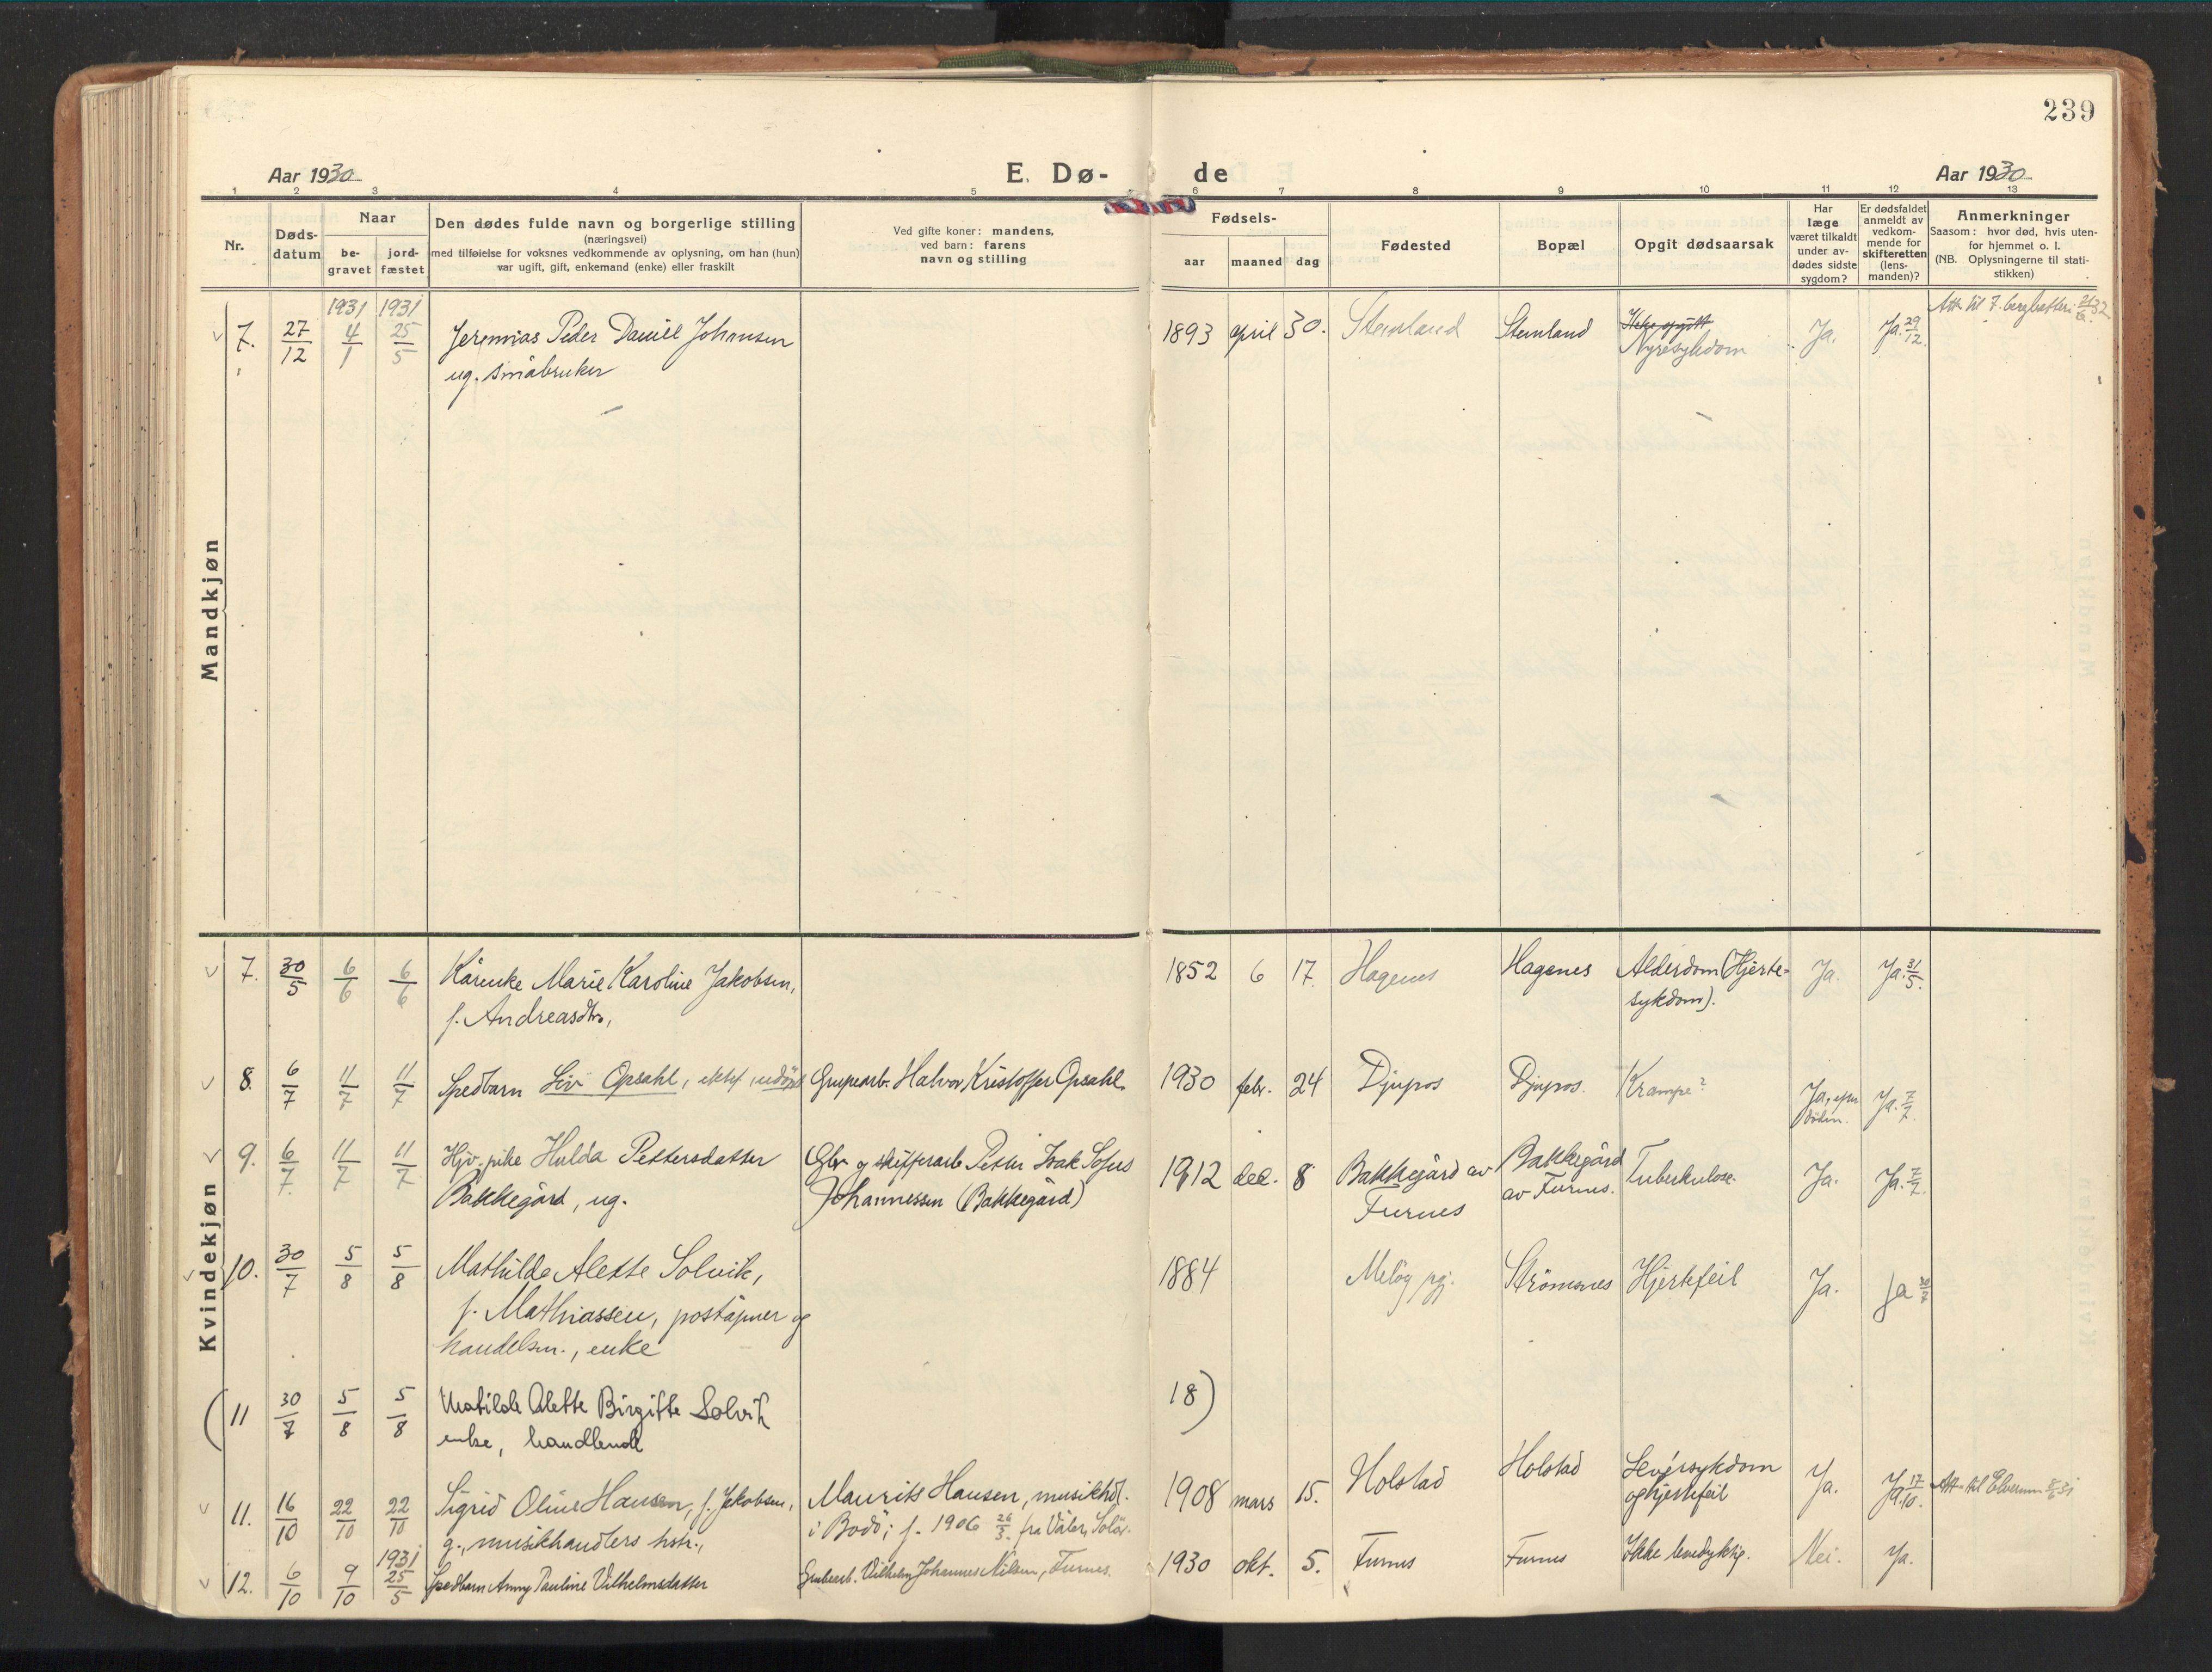 239
Aar 1930
E. Dø-
de
Aar 1930
1 2 3 4 5 6 7 8 9 10 11 12 13
Nr.
Døds-
datum
Naar
be-
gravet
jord-
fæstet
Den dødes fulde navn og borgerlige stilling
(næringsvei)
med tilføielse for voksnes vedkommende av oplysning, om han (hun)
var ugift, gift, enkemand (enke) eller fraskilt
Ved gifte koner: mandens,
ved barn: farens
navn og stilling
Fødsels-
aar maaned dag
Fødested
Bopæl
Opgit dødsaarsak
Har
læge
været tilkaldt
under av-
dødes sidste
sygdom?
Er dødsfaldet
anmeldt av
vedkom-
mende for
skifteretten
(lens-
manden)?
Anmerkninger
Saasom: hvor død, hvis uten-
for hjemmet o. l.
(NB. Oplysningerne til stati-
stikken)
Mandkjøn
1931 1931
7. 27/12 4/1 25/5 Jeremias Peder Daniel Johansen 1893 april 30. Stemland Stemland Ikke opgitt Ja. Ja. 29/12
ug. småbruker Nyresykdom
Kvindekjøn
7. 30/5 6/6 6/6 Kårenke Marie Karoline Jakobsen, 1852 6 17. Hagenes Hagenes Alderdom (Hjerte- Ja. Ja. 31/5.
f. Andreasdtr., sykdom).
8. 6/7 11/7 11/7 Spedbarn Liv Opsahl, Halvor Kristoffer Opsahl. 1930 febr. 24 Djupos Djupos. Krampe? Ja, Ja. 7/7.
9. 6/7 11/7 11/7 Hjv. pike Hulda Pettersdatter Petter Isak Sofus 1912 des. 8 Bakkegård av Bakkegård Tuberkulose. Ja. Ja. 7/7.
Bakkegård, ug. Johannessen (Bakkegård) Furnes av Furnes.
10. 30/7 5/8 5/8 Mathilde Alette Solvik, 1884 Meløy pgj. Strömsnes Hjertefeil Ja. Ja 30/7
f. Mathiassen, poståpner og
handelsm., enke
(11 30/7 5/8 5/8 Matilde Alette Birgitte Solvik 18)
enke, handlende
11. 16/10 22/10 22/10 Sigrid Oline Hansen, f. Jakobsen, Maurits Hansen, musikhdl. 1908 mars 15. Holstad Holstad Leversykdom Ja. Ja 17/10. Att. til Elverum 31
g., musikhandlers hstr., i Bodö; f. 1906 26/3. fra Våler, Solör. og hjertefeil
1931
12. 6/10 9/10 25/5 Spedbarn Anny Pauline Vilhelmsdatter Grubearb. Vilhelm Johannes Nilsen, Furnes. 1930 okt. 5. Furnes Furnes Ikke levedyktig. Nei. Ja.